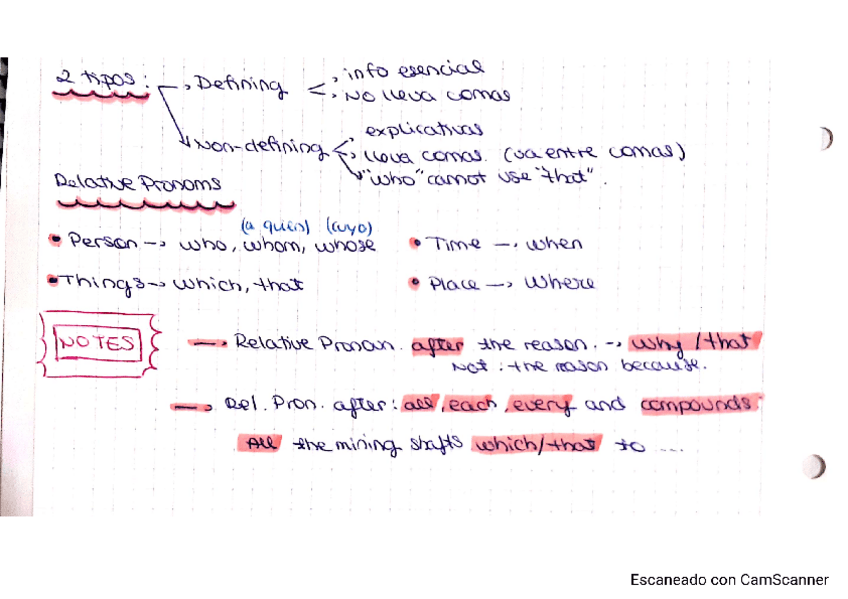 2 tipos: → Defining < → info esencial
→ NO lleva comas
Non-defining < explicativas
lleva comas. (va entre comas)
"who" cannot use "that".
Relative Pronoms
(a quien) (cuyo)
• Person → who, whom, whose
• Time → when
• Things → which, that
• Place → Where
NOTES
→ Relative Pronoun. after the reason. → why / that
Not: the reason because.
→ Rel. Pron. after: all, each, every and compounds:
All the mining shafts which/that to ....
Escaneado con CamScanner